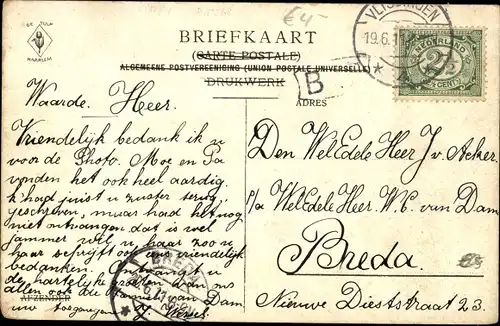 €4-
DE TULP
HAARLEM
BRIEFKAART
(CARTE POSTALE)
ALGEMEENE POSTVEREENIGING (UNION POSTALE UNIVERSELLE)
DRUKWERK
B
ADRES
VLISSINGEN
19.6.1
NEDERLAND
2½
CENT
Waarde Heer.
Vriendelijk bedank ik u
voor de Photo. Moe en Pa
vonden het ook heel aardig.
k'had juist u zuster terug
geschreven, maar had het nog
niet ontvangen dat is wel
jammer wel u haar zoo
haar vriendelijk
bedanken. Ontvangt u
de hartelijke groeten van ons
allen ook de Familie van Dam
uw toegenegen
AFZENDER
BREDA
Den WelEdele Heer J. v. Acker.
p/a WelEdele Heer W. C. van Dam
Breda.
Nieuwe Dieststraat 23.